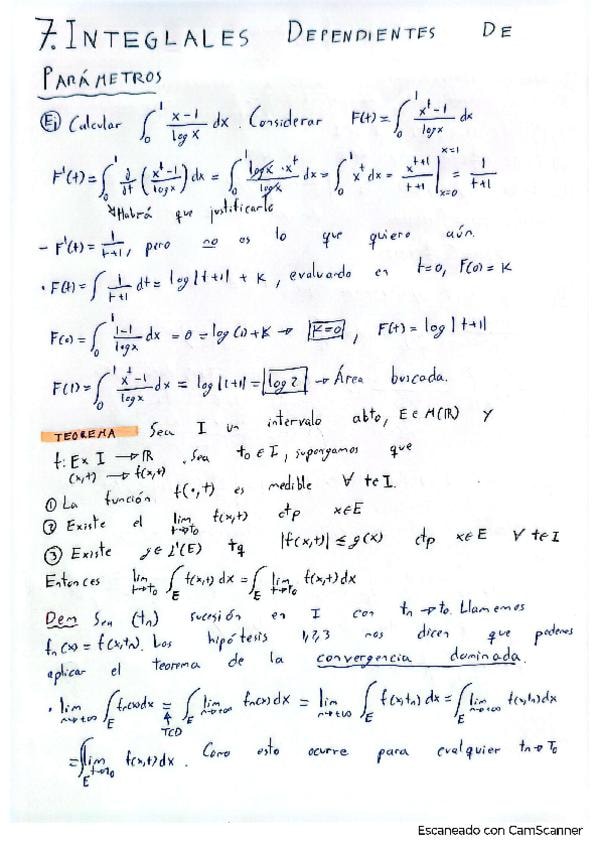 7. INTEGLALES DEPENDIENTES DE
PARÁMETROS
Ej Calcular ∫₀¹ (x-1)/(log x) dx. Considerar F(t) = ∫₀¹ (xᵗ-1)/(log x) dx
F'(t) = ∫₀¹ ∂/∂t ((xᵗ-1)/(log x)) dx = ∫₀¹ (log x · xᵗ)/(log x) dx = ∫₀¹ xᵗ dx = xᵗ⁺¹/(t+1) |ₓ₌₀ˣ⁼¹ = 1/(t+1)
Habrá que justificarlo
- F'(t) = 1/(t+1), pero no es lo que quiero aún.
· F(t) = ∫ 1/(t+1) dt = log|t+1| + K, evaluando en t=0, F(0) = K
F(0) = ∫₀¹ (1-1)/(log x) dx = 0 = log(1) + K → K=0, F(t) = log|t+1|
F(1) = ∫₀¹ (xᵗ-1)/(log x) dx = log|1+1| = log 2 → Área buscada.
TEOREMA Sea I un intervalo abto, E ∈ M(ℝ) y
f: E x I → ℝ. Sea t₀ ∈ I, supongamos que
(x,t) → f(x,t)
① La función f(·,t) es medible ∀ t∈I.
② Existe el lim t→t₀ f(x,t) ctp x∈E
③ Existe g ∈ L¹(E) tq |f(x,t)| ≤ g(x) ctp x∈E ∀ t∈I
Entonces lim t→t₀ ∫_E f(x,t) dx = ∫_E lim t→t₀ f(x,t) dx
Dem Sea (tn) sucesión en I con tn → t₀. Llamemos
fn(x) = f(x,tn). Los hipótesis 1,2,3 nos dicen que podemos
aplicar el teorema de la convergencia dominada.
· lim n→+∞ ∫_E fn(x) dx = ∫_E lim n→+∞ fn(x) dx = lim n→+∞ ∫_E f(x,tn) dx = ∫_E lim n→+∞ f(x,tn) dx
TCD
= ∫_E lim t→t₀ f(x,t) dx. Como esto ocurre para cualquier tn → t₀
Escaneado con CamScanner